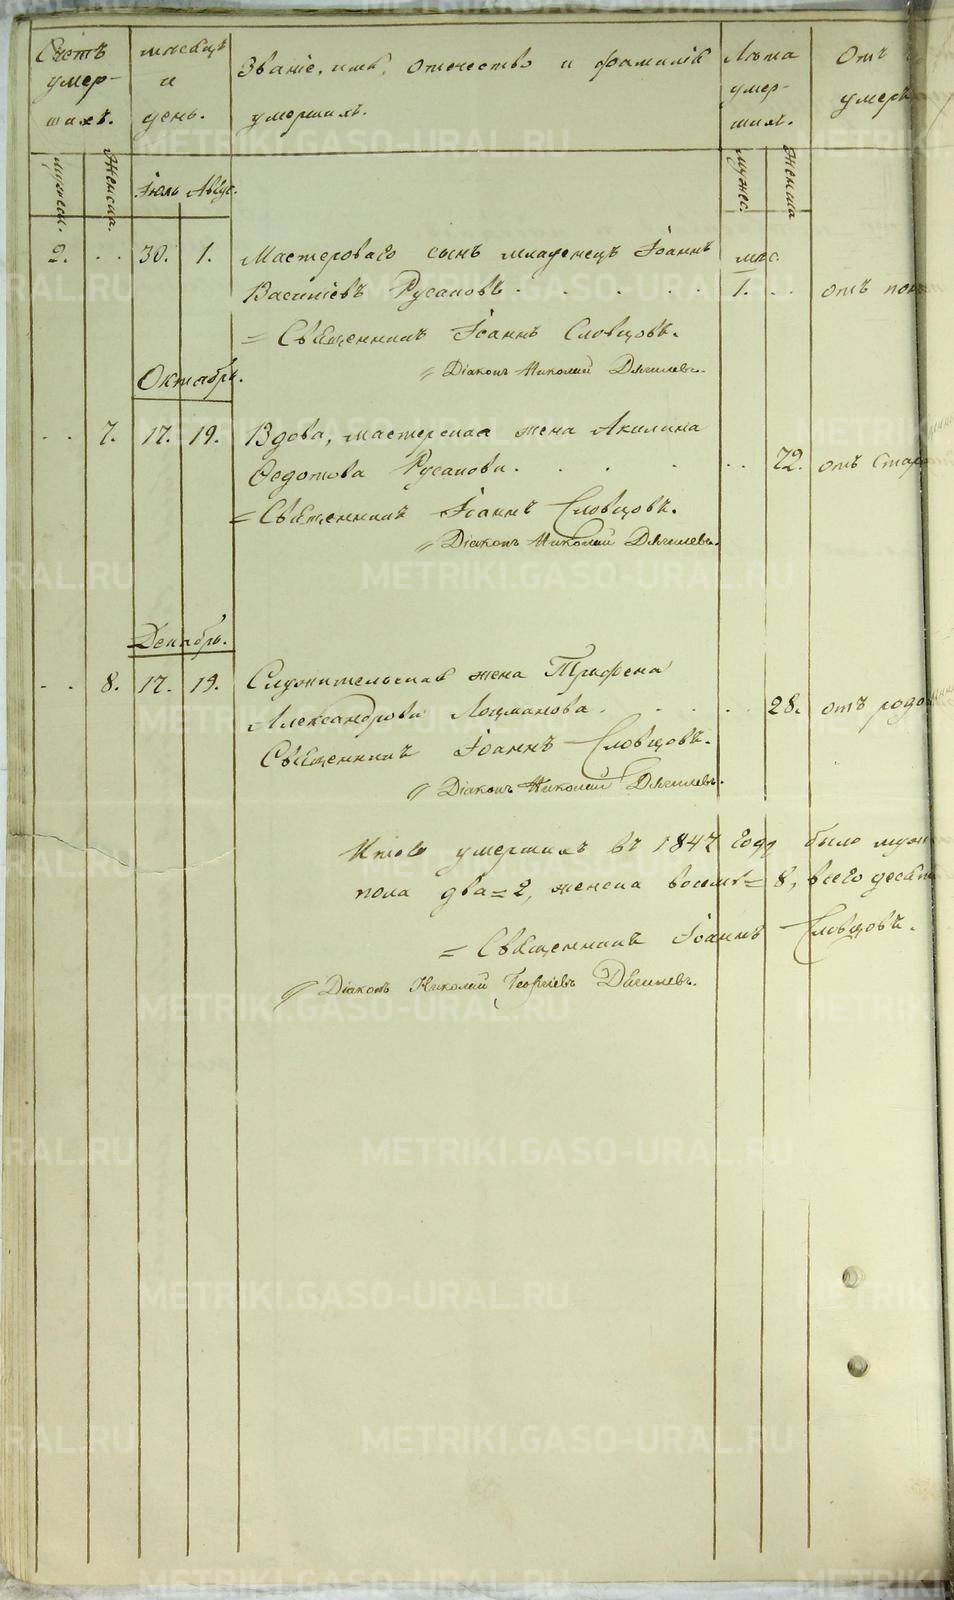 Счетъ умер- шихъ.
мѣсяцъ и день.
Званіе, имя, отчество и фамилія умершихъ.
Лѣта умер- шихъ.
Отъ
умер
мужеск. женска. Іюль Авгус. мужес. женска
2. . . 30. 1. Мастероваго сынъ младенецъ Іоаннъ мѣс.
Василіевъ Русановъ . . . . . 1. . . отъ пон
= Священникъ Іоаннъ Словцовъ.
Октябрь. Діаконъ Николай Дягилевъ.
. . 7. 17. 19. Вдова, мастерская жена Акилина
Ѳедотова Русанова . . . . . . 72. отъ стар
= Священникъ Іоаннъ Словцовъ.
Діаконъ Николай Дягилевъ.
Декабрь.
. . 8. 17. 19. Служительская жена Трифена
Александрова Лоцманова . . . . . 28. отъ родо
Священникъ Іоаннъ Словцовъ.
Діаконъ Николай Дягилевъ.
Итого умершихъ въ 1847 году было муж
пола два = 2, женска восемь = 8, всего десят
= Священникъ Іоаннъ Словцовъ.
Діаконъ Николай Георгіевъ Дягилевъ.
METRIKI.GASO-URAL.RU